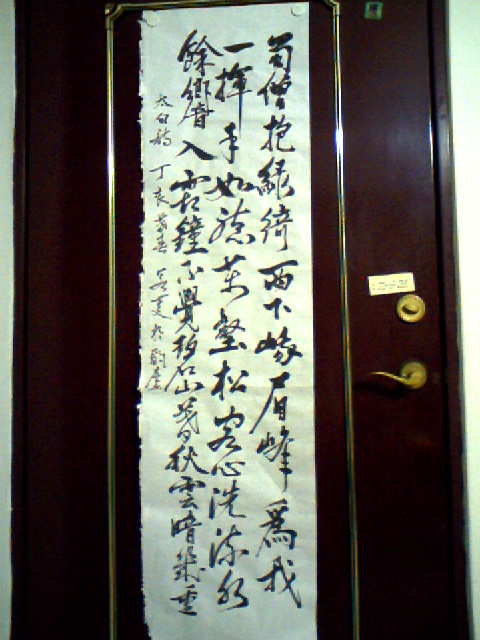 蜀僧抱綠綺西下峨眉峰爲我
一揮手如聽萬壑松客心洗流水
餘響入霜鐘不覺碧山暮秋雲暗幾重
太白詩 丁亥暮春